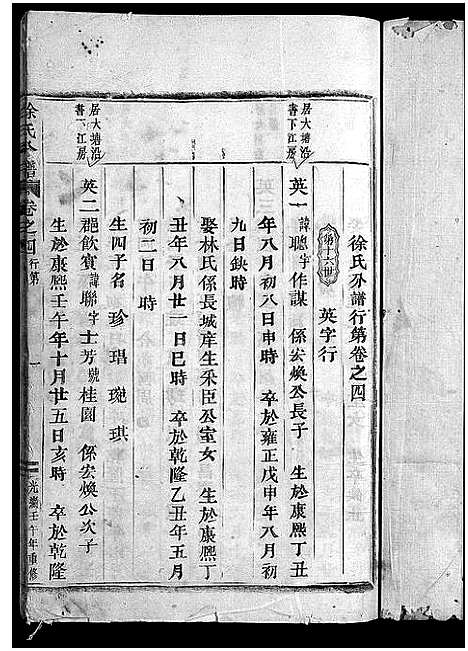 徐氏分譜行第卷之四
第十六世
英字行
居大塘沿
書下江房
英一 諱聰字作謀 係宏煥公長子 生於康熙丁丑
年八月初八日申時 卒於雍正戊申年八月初
九日缺時
娶林氏係長城庠生釆臣公室女 生於康熙丁
丑年八月廿一日巳時 卒於乾隆乙丑年五月
初二日 時
生四子名 珍 琩 琬 琪
居大塘沿
書下江房
英二 郡飲賓諱聯字士芳號桂園 係宏煥公次子
生於康熙壬午年十月廿五日亥時 卒於乾隆
徐氏分譜 卷之四 行第 一 光緒壬午年重修